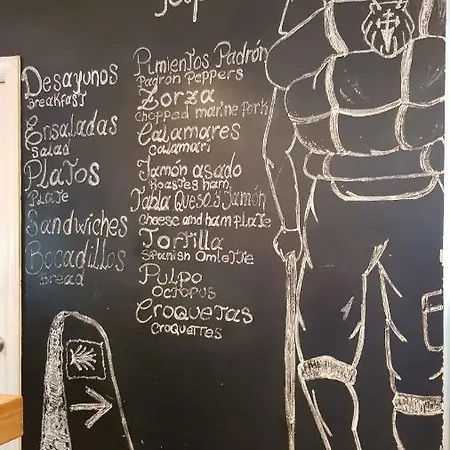 Desayunos
Breakfast
Ensaladas
Salad
Platos
Plate
Sandwiches
Bocadillos
Bread
Pimientos Padrón
Padrón Peppers
Zorza
Chopped marine pork
Calamares
Calamari
Jamón asado
Roasted ham
Tabla Queso y Jamón
cheese and ham plate
Tortilla
Spanish Omlette
Pulpo
Octopus
Croquetas
Croquettas